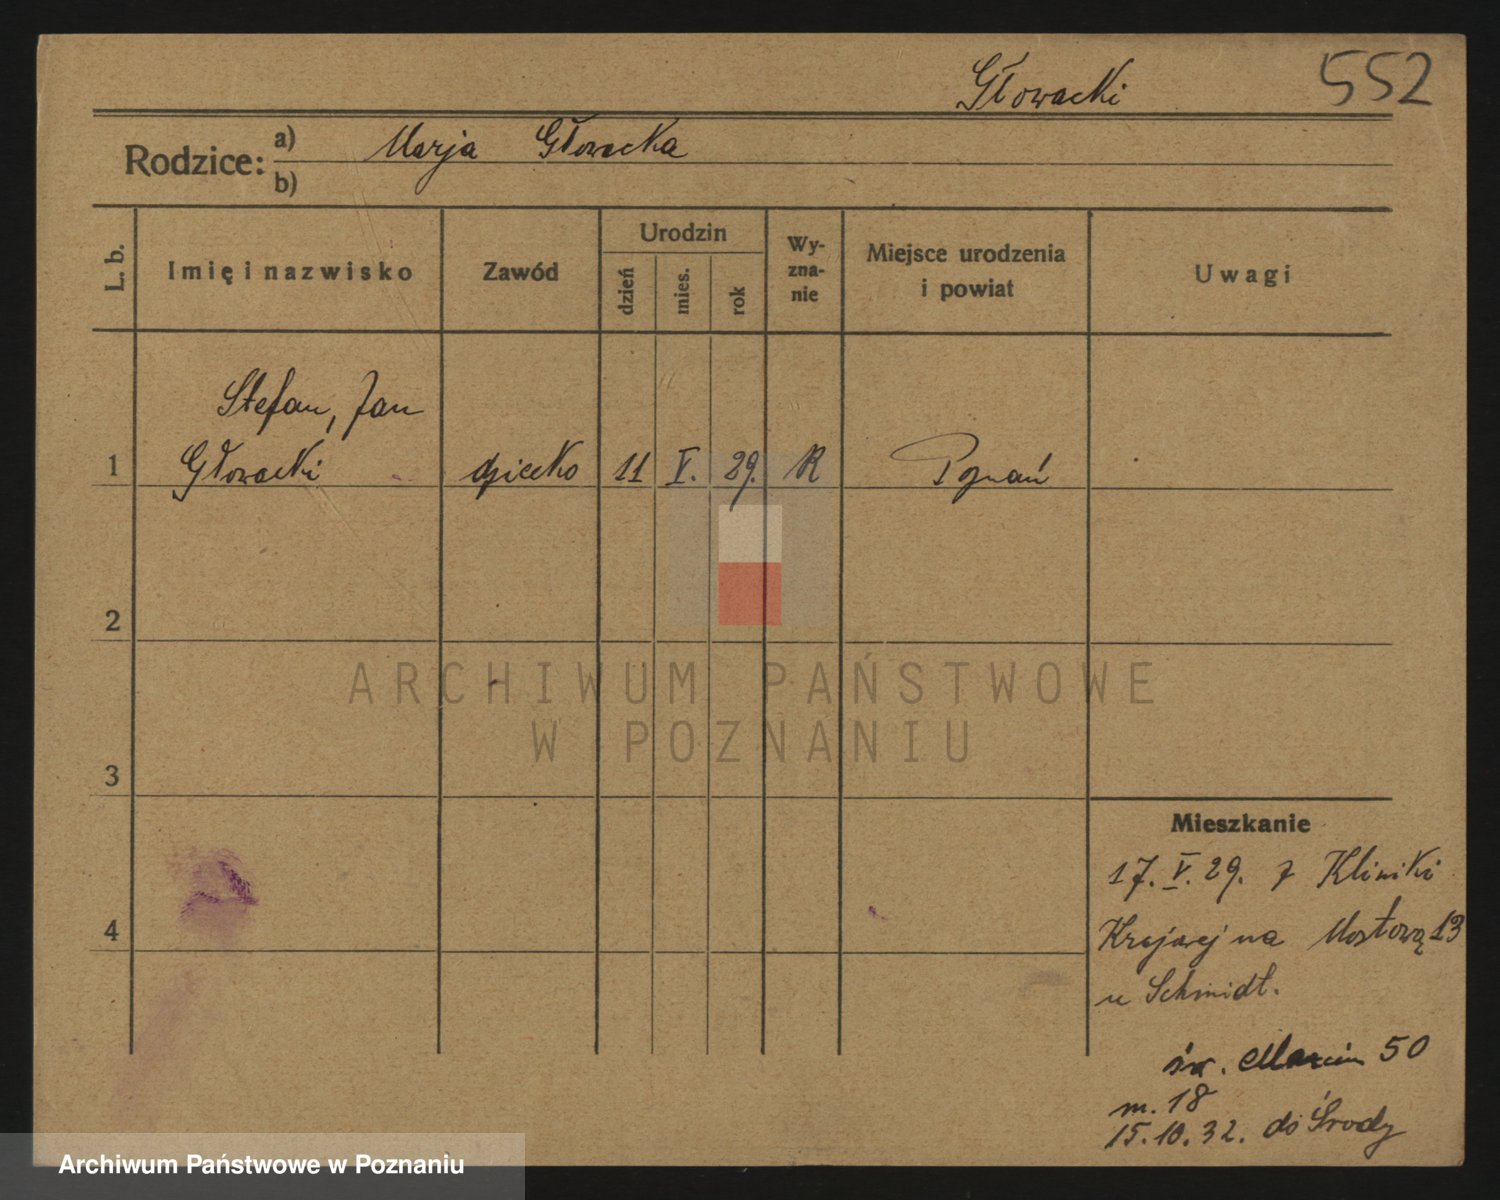 Głowacki 552
Rodzice:
a) Marja Głowacka
b)
L. b.
Imię i nazwisko
Zawód
Urodzin
dzień
mies.
rok
Wy-
zna-
nie
Miejsce urodzenia
i powiat
Uwagi
Stefan, Jan
1 Głowacki dziecko 11 V. 29. R Poznań
2
3
4
Mieszkanie
17. V. 29. z Kliniki
Krajowej na Mostową 13
u Schmidt.
św. Marcin 50
m. 18
15.10.32. do Środy
ARCHIWUM PAŃSTWOWE
W POZNANIU
Archiwum Państwowe w Poznaniu